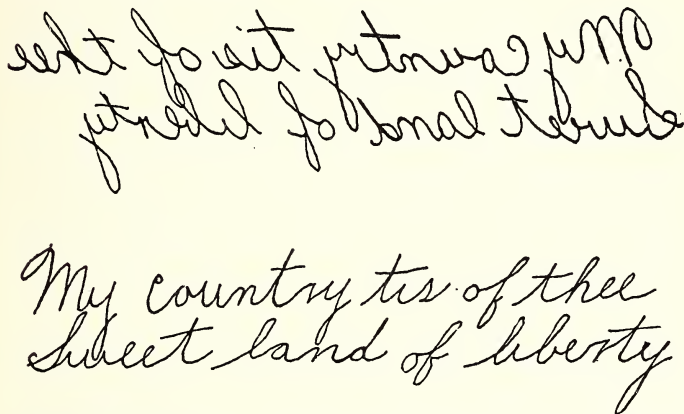 My country tis of thee
Sweet land of liberty
My country tis of thee
Sweet land of liberty